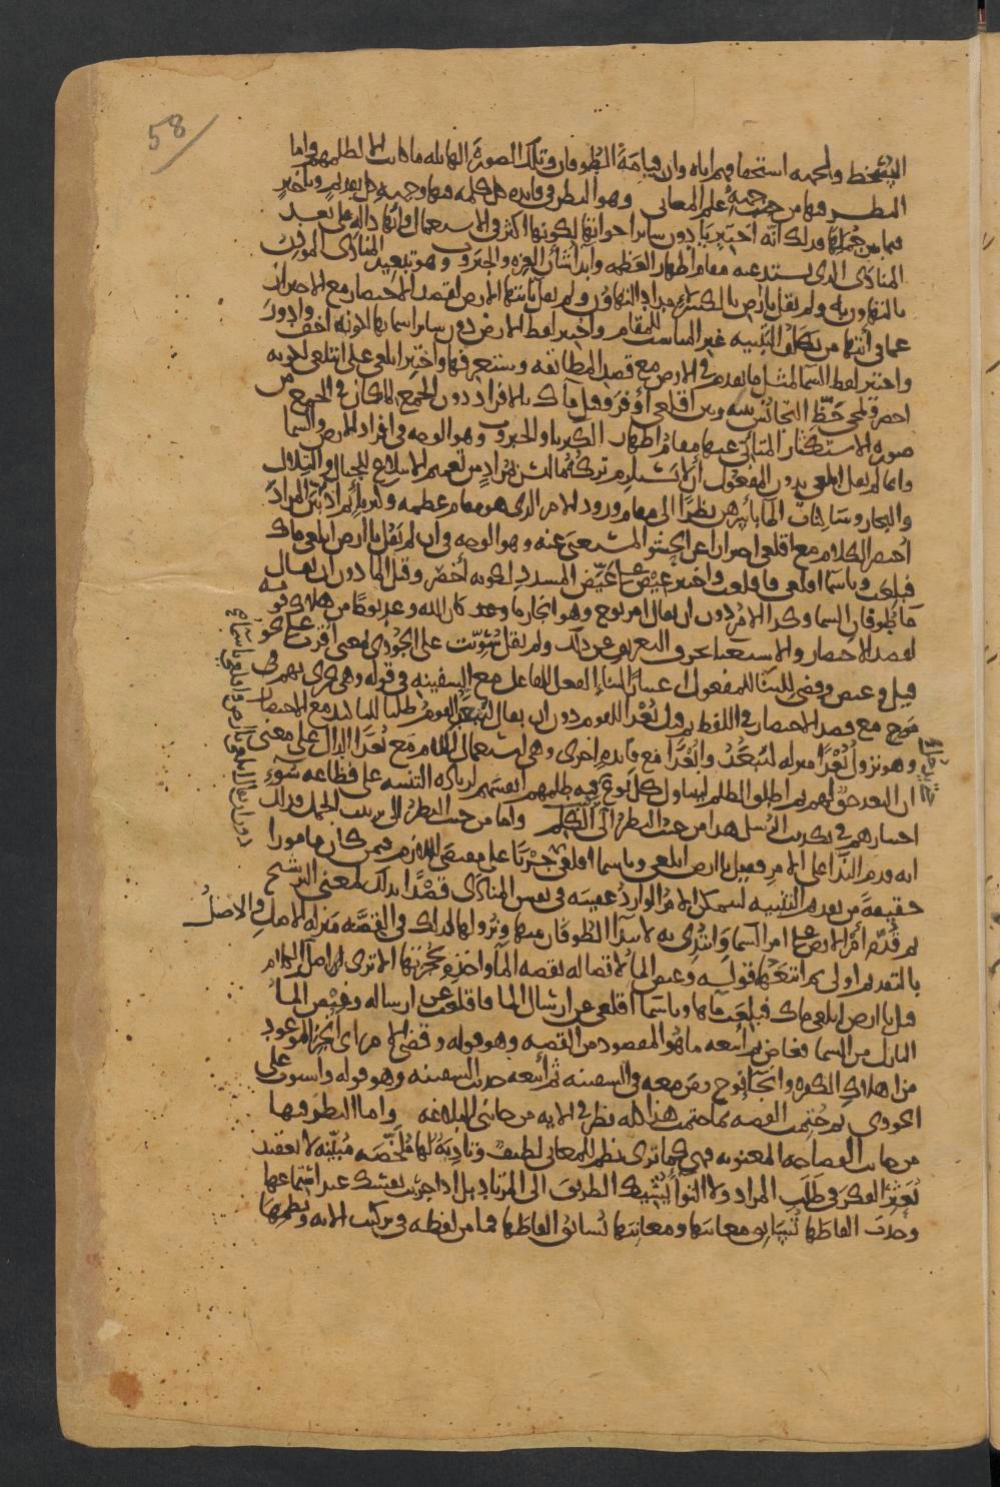 58
السخط ولجهه استحقاقهم اياه وان قيامة الطوفان وتلك الصورة الهايله ما كانت الا لظلمهم واما
النظر فيها من جهة علم المعاني وهو النظر في فايده كل كلمه منها وجهه كل تقديم وتاخير
فيما بين جملها فذلك انه اختير يا دون ساير اخواتها لكونها اكثر في الاستعمال وانها داله على بعد
المنادى الذي يستدعيه مقام اظهار العظمه وابداء شان العزه والجبروت وهو تبعيد المنادى الموذن
بالتهاون به ولم يقل يا ارض بالكسر لامداد التهاون ولم يقل يا ايتها الارض لقصد الاختصار مع الاحتراز
عما في ايتها من تكلف التنبيه غير المناسب للمقام واختير لفظ الارض دون ساير اسمايها لكونه اخف وادور
واختير لفظ السما لمثل ما تقدم في الارض مع قصد المطابقه وستعرفها واختير ابلعي على ابتلعي لكونه
اخصر ولمجي حظ التجانس بينه وبين اقلعي اوفر وقيل ماك بالافراد دون الجمع لما كان في الجمع من
صوره الاستكثار المتاتى عنها مقام اظهار الكبريا والجبروت وهو الوجه في افراد الارض والسما
وانما لم يقل ابلعي بدون المفعول ان لا يستلزم تركه ما ليس بمراد من تعميم الابتلاع للجبال والتلال
والبحار وساكنات الما باسرهن نظرا الى مقام ورود الامر الذي هو مقام عظمه وكبرياء ثم اذ بين المراد
اختصر الكلام مع اقلعي احترازا عن الحشو المستغنى عنه وهو الوجه في ان لم يقل يا ارض ابلعي ماك
فبلعت ويا سما اقلعي فاقلعت واختير غيض على غيّض المشدد لكونه اخصر وقيل الما دون ان يقال
ما طوفان السما وكذا الامر دون ان يقال امر نوح وهو انجاز ما وعد كان الله وعد نوحا من هلاك قومه
لقصد الاختصار والاستغنا بحرف التعريف عن ذلك ولم يقل سويت على الجودي بمعنى اقرت على نحو
قيل وغيض وقضي للبنا للمفعول اعتبارا لبناء الفعل للفاعل مع السفينه في قوله وهي تجري بهم في
موج مع قصد الاختصار في اللفظ ثم قيل بعدا للقوم دون ان يقال ليبعد القوم طلبا للتاكيد مع الاختصار
وهو نزول بعدا منزله ليبعدوا بعدا مع فايده اخرى وهي استعمال اللام مع بعدا الدال على معنى
ان البعد حق لهم ثم اطلق الظلم ليتناول كل نوع فيه ظلمهم انفسهم لزياده التنبيه على فظاعه سوء
اختيارهم في تكذيب الرسل هذا من حيث النظر الى الكلم واما من حيث النظر الى ترتيب الجمل فذلك
انه قدم النداء على الامر فقيل يا ارض ابلعي ويا سما اقلعي جريا على مقتضى اللازم فيمن كان مامورا
حقيقة من تقديم التنبيه ليتمكن الامر الوارد عقيبه في نفس المنادى قصدا بذلك لمعنى الترشيح
ثم قدم امر الارض على امر السما وابتدى به لابتداء الطوفان منها ونزولها لذلك في القصه منزله الاصل والاصل
بالتقديم اولى ثم اتبعها قوله وغيض الما لاتصاله بقصه الما واخذه بحجزتها الا ترى اصل الكلام
قيل يا ارض ابلعي ماك فبلعت ماها ويا سما اقلعي عن ارسال الما فاقلعت عن ارساله وغيض الما
النازل من السما فغاض ثم اتبعه ما هو المقصود من القصه وهو قوله وقضي الامر اي انجز الموعود
من اهلاك الكفره وانجاء نوح ومن معه في السفينه ثم اتبعه حديث السفينه وهو قوله واستوت على
الجودي ثم ختمت القصه بما ختمت هذا كله نظر في الايه من جانبي البلاغه واما النظر فيها
من جانب الفصاحه المعنويه فهي كما ترى نظم للمعاني لطيف وتاديه لها ملخصه مبينه لا تعقيد
يعثر الفكر في طلب المراد ولا التواء يشيك الطريق الى المرتاد بل اذا جربت نفسك عند استماعها
وجدت الفاظها تسابق معانيها ومعانيها تسابق الفاظها فما من لفظه في تركيب الايه ونظمها